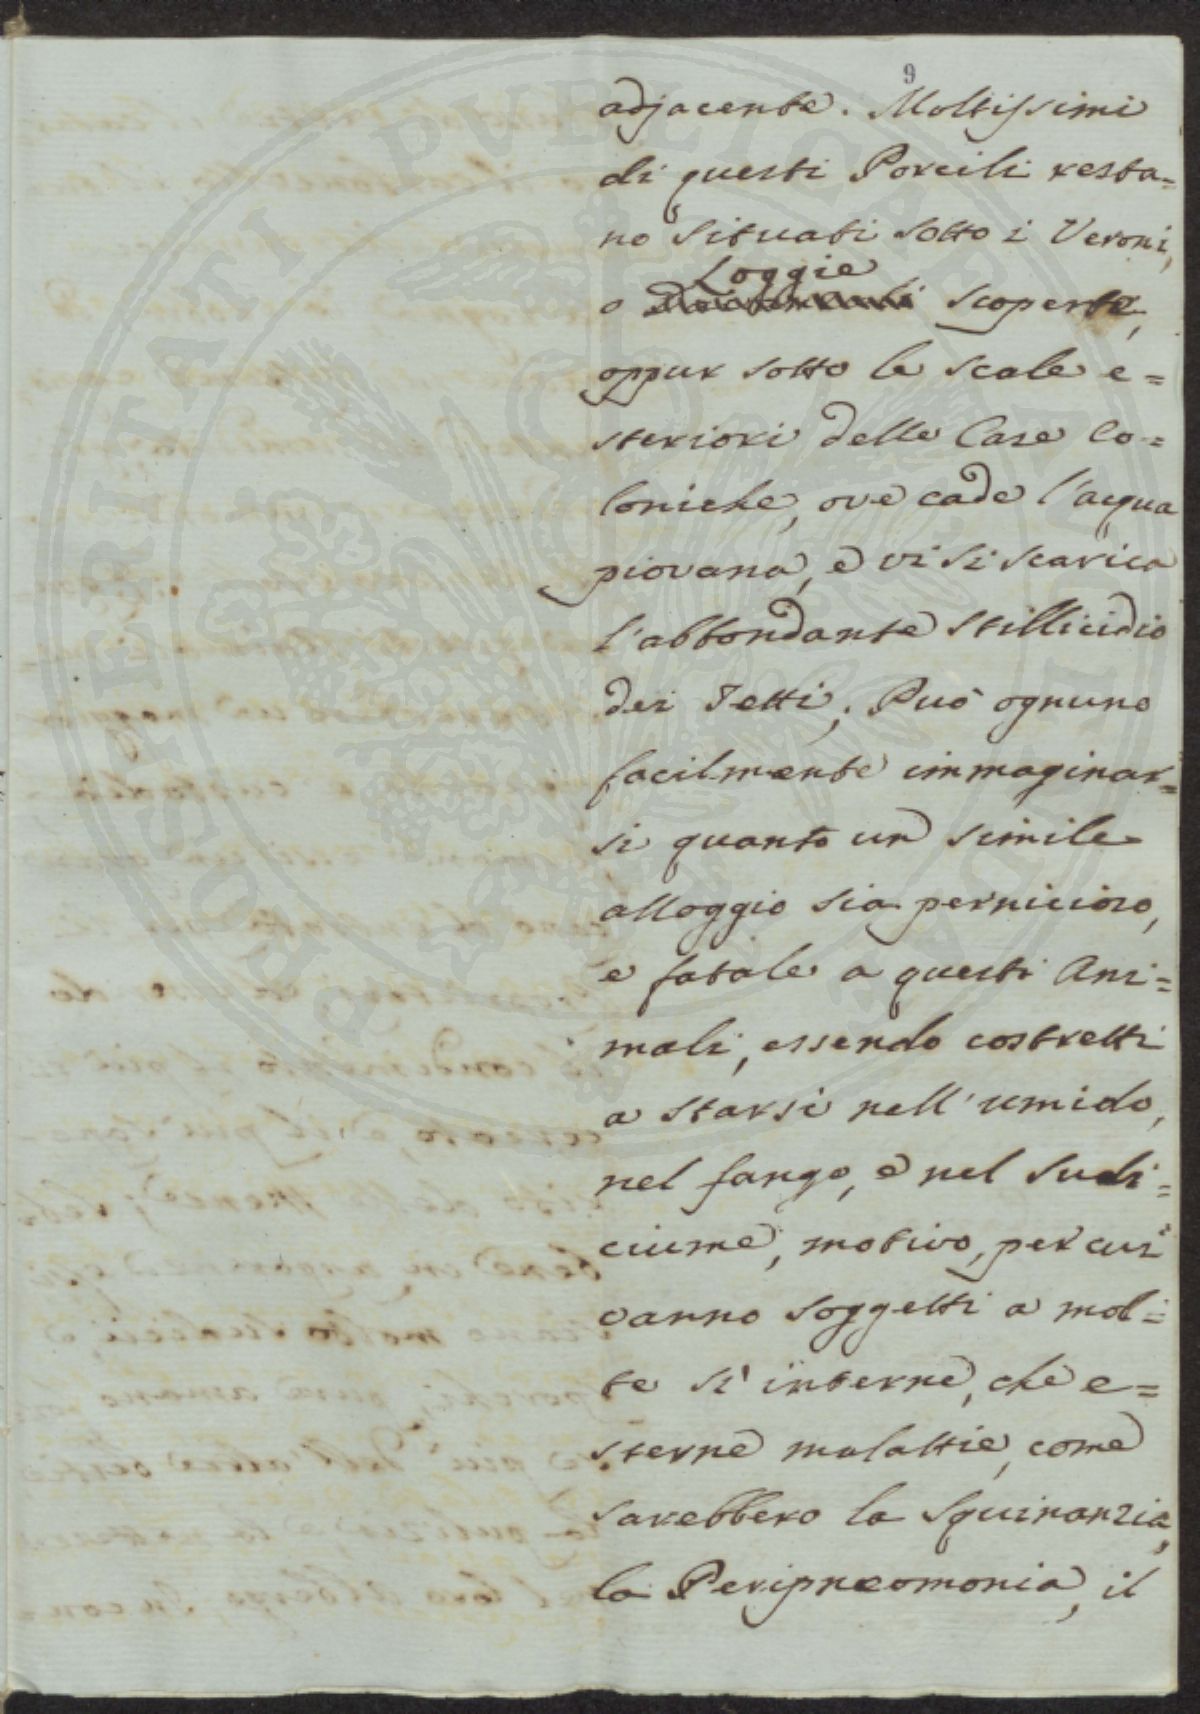 9
adjacente. Moltissimi
di questi Porcili resta=
no situati sotto i Veroni,
Loggie
o scoperte,
oppur sotto le scale e=
steriori delle Case Co=
loniche, ove cade l'acqua
piovana, e vi si scarica
l'abbondante stillicidio
dei Tetti; Può ognuno
facilmente immaginar=
si quanto un simile
alloggio sia pernicioso,
e fatale a questi Ani=
mali, essendo costretti
a starsi nell'umido,
nel fango, e nel sudi=
ciume, motivo, per cui
vanno soggetti a mol=
te sì interne, che e=
sterne malattie, come
sarebbero la Squinanzia,
la Peripneomonia, il
PUBLICAE
POSTERITATI